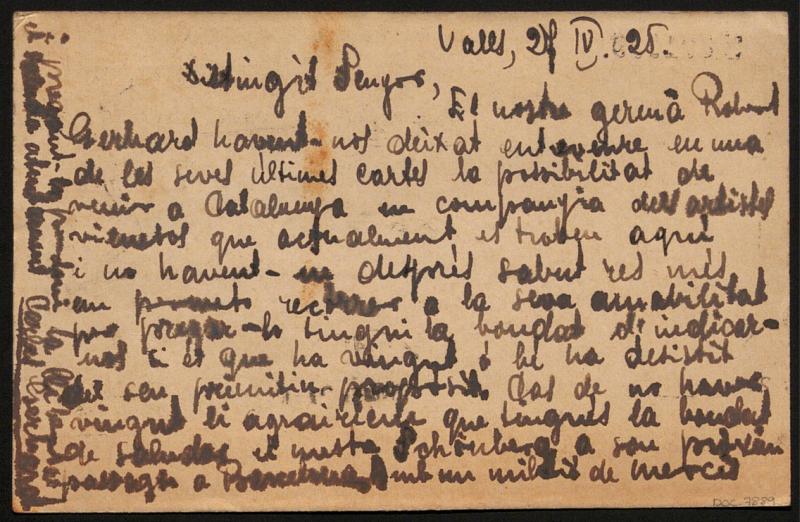 Valls, 27 IV. 25.
Distingit Senyor,
El nostre germà Robert
Gerhard havent-nos deixat entreveure en una
de les seves últimes cartes la possibilitat de
venir a Catalunya en companyia dels artistes
vienesos que actualment es troben aquí
i no havent-ne després sabut res més
em permeto recorrer a la seva amabilitat
per pregar-lo tingui la bondat d'indicar-
nos si es que ha vingut ó be ha desistit
del seu primitiu proposit. Cas de no haver
vingut li agrairiem que tingués la bondat
de saludar el mestre Schönberg a son pròxim
passatge a Barcelona. Amb un miler de mercès
la
i saluda atentament Carles Gerhard
DOC-7889